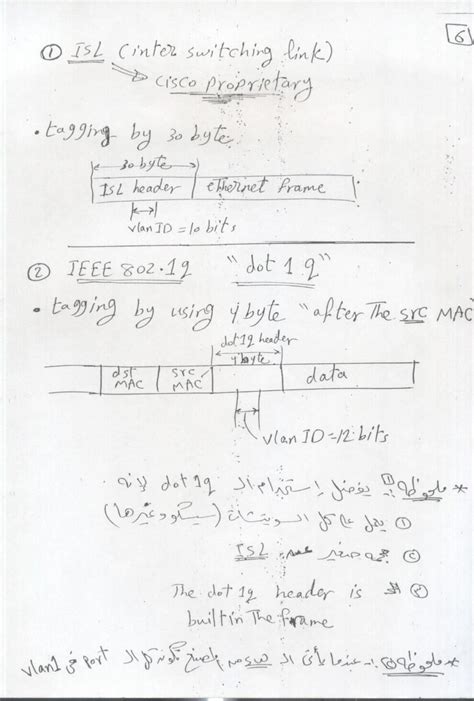 6
① ISL (inter switching link)
cisco proprietary
• tagging by 30 byte
30 byte
ISL header | ethernet frame
vlan ID = 10 bits
② IEEE 802.1q "dot 1 q"
• tagging by using 4 byte "after The src MAC
dot 1q header
4 byte
dst MAC | src MAC | data
vlan ID = 12 bits
* ملحوظة ①: يفضل إستخدام الـ dot 1q لأنه
① يعمل على كل السويتشات (سيسكو وغيرها)
② حجمه صغير عن ISL
③ The dot 1q header is
built in The frame
* ملحوظة ②: عندما يأتى الـ sw من المصنع تكون كل الـ port فى vlan1